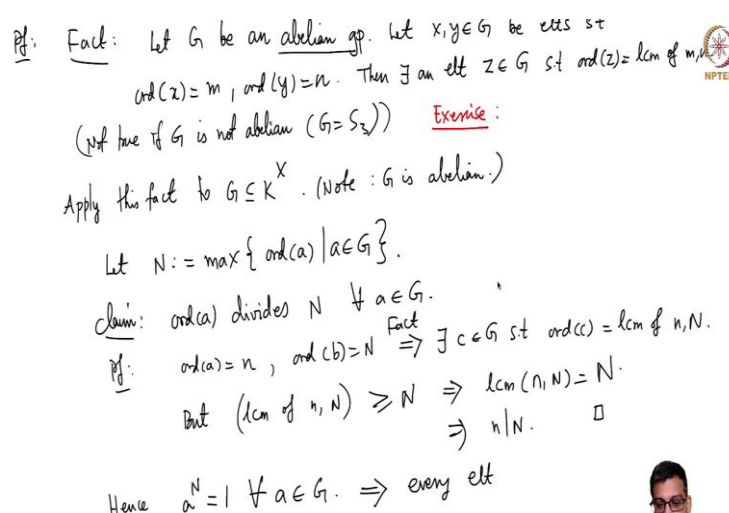 Pf: Fact: Let G be an abelian gp. Let x, y ∈ G be elts st
ord(x) = m, ord(y) = n. Then ∃ an elt z ∈ G s.t ord(z) = lcm of m,n.
NPTEL
(Not true if G is not abelian (G = S₃)) Exercise:
Apply this fact to G ⊆ K^×. (Note: G is abelian.)
Let N := max { ord(a) | a ∈ G }.
Claim: ord(a) divides N ∀ a ∈ G.
Pf: ord(a) = n, ord(b) = N ⟹ Fact ∃ c ∈ G s.t ord(c) = lcm of n, N.
But (lcm of n, N) ⩾ N ⟹ lcm(n, N) = N.
⟹ n | N. □
Hence a^N = 1 ∀ a ∈ G. ⟹ every elt